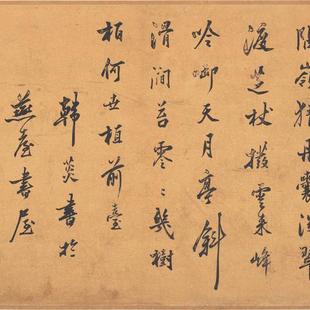 嶺丹囊翠
渡芝杖撥雲來峰
吟嘯天月亭斜
滑澗苔零〻幾樹
柏何世植前臺
韓菼書於
燕臺書屋